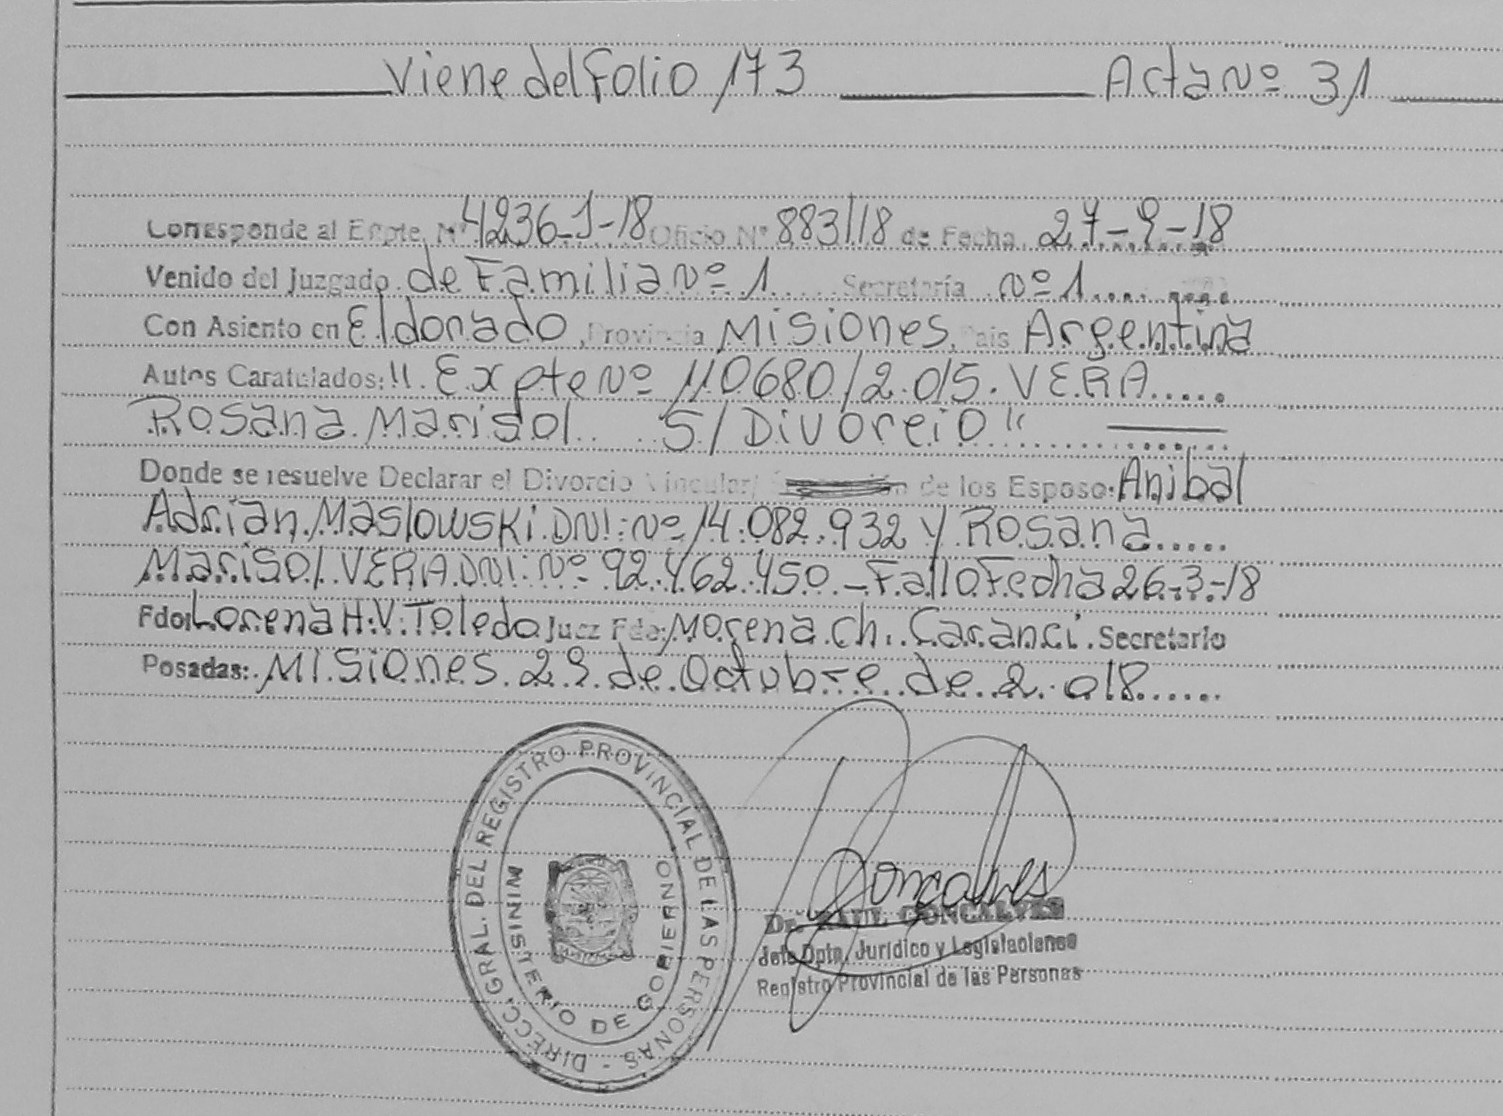 Viene del Folio 173 Acta Nº 31
Corresponde al Expte. Nº 4236-J-18 Oficio Nº 883/18 de Fecha 27-9-18
Venido del Juzgado de Familia Nº 1 Secretaría Nº 1
Con Asiento en Eldorado, Provincia Misiones, País Argentina
Autos Caratulados: "Expte Nº 110680/2.015. VERA
Rosana Marisol S/Divorcio"
Donde se resuelve Declarar el Divorcio Vincular/ de los Esposo: Anibal
Adrian Maslowski DNI: Nº 14.082.932 y Rosana
Marisol VERA DNI: Nº 92.462.450 - Fallo Fecha 26-3-18
Fdo: Lorena H.V. Toledo Juez Fdo: Morena Ch. Caranci. Secretario
Posadas: Misiones 29 de Octubre de 2.018
DIRECC. GRAL. DEL REGISTRO PROVINCIAL DE LAS PERSONAS -
MINISTERIO DE GOBIERNO
Goncalves
Dr. RAUL GONCALVES
Jefe Dpto. Jurídico y Legislaciones
Registro Provincial de las Personas